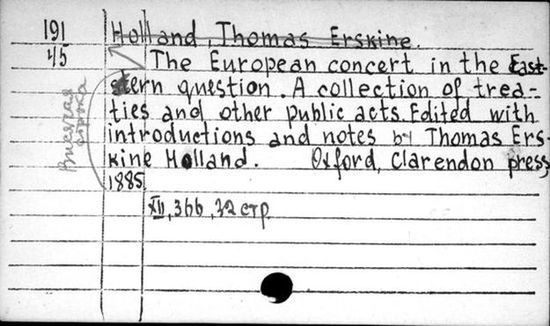 191
45
Holland, Thomas Erskine.
The European concert in the East-
stern question. A collection of trea-
ties and other public acts. Edited with
introductions and notes by Thomas Ers-
kine Holland. Oxford, Clarendon press
1885
XII, 366, 22 стр